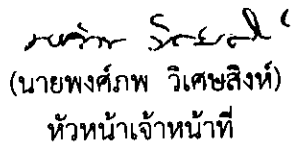 (นายพงศ์ภพ วิเศษสิงห์)
หัวหน้าเจ้าหน้าที่